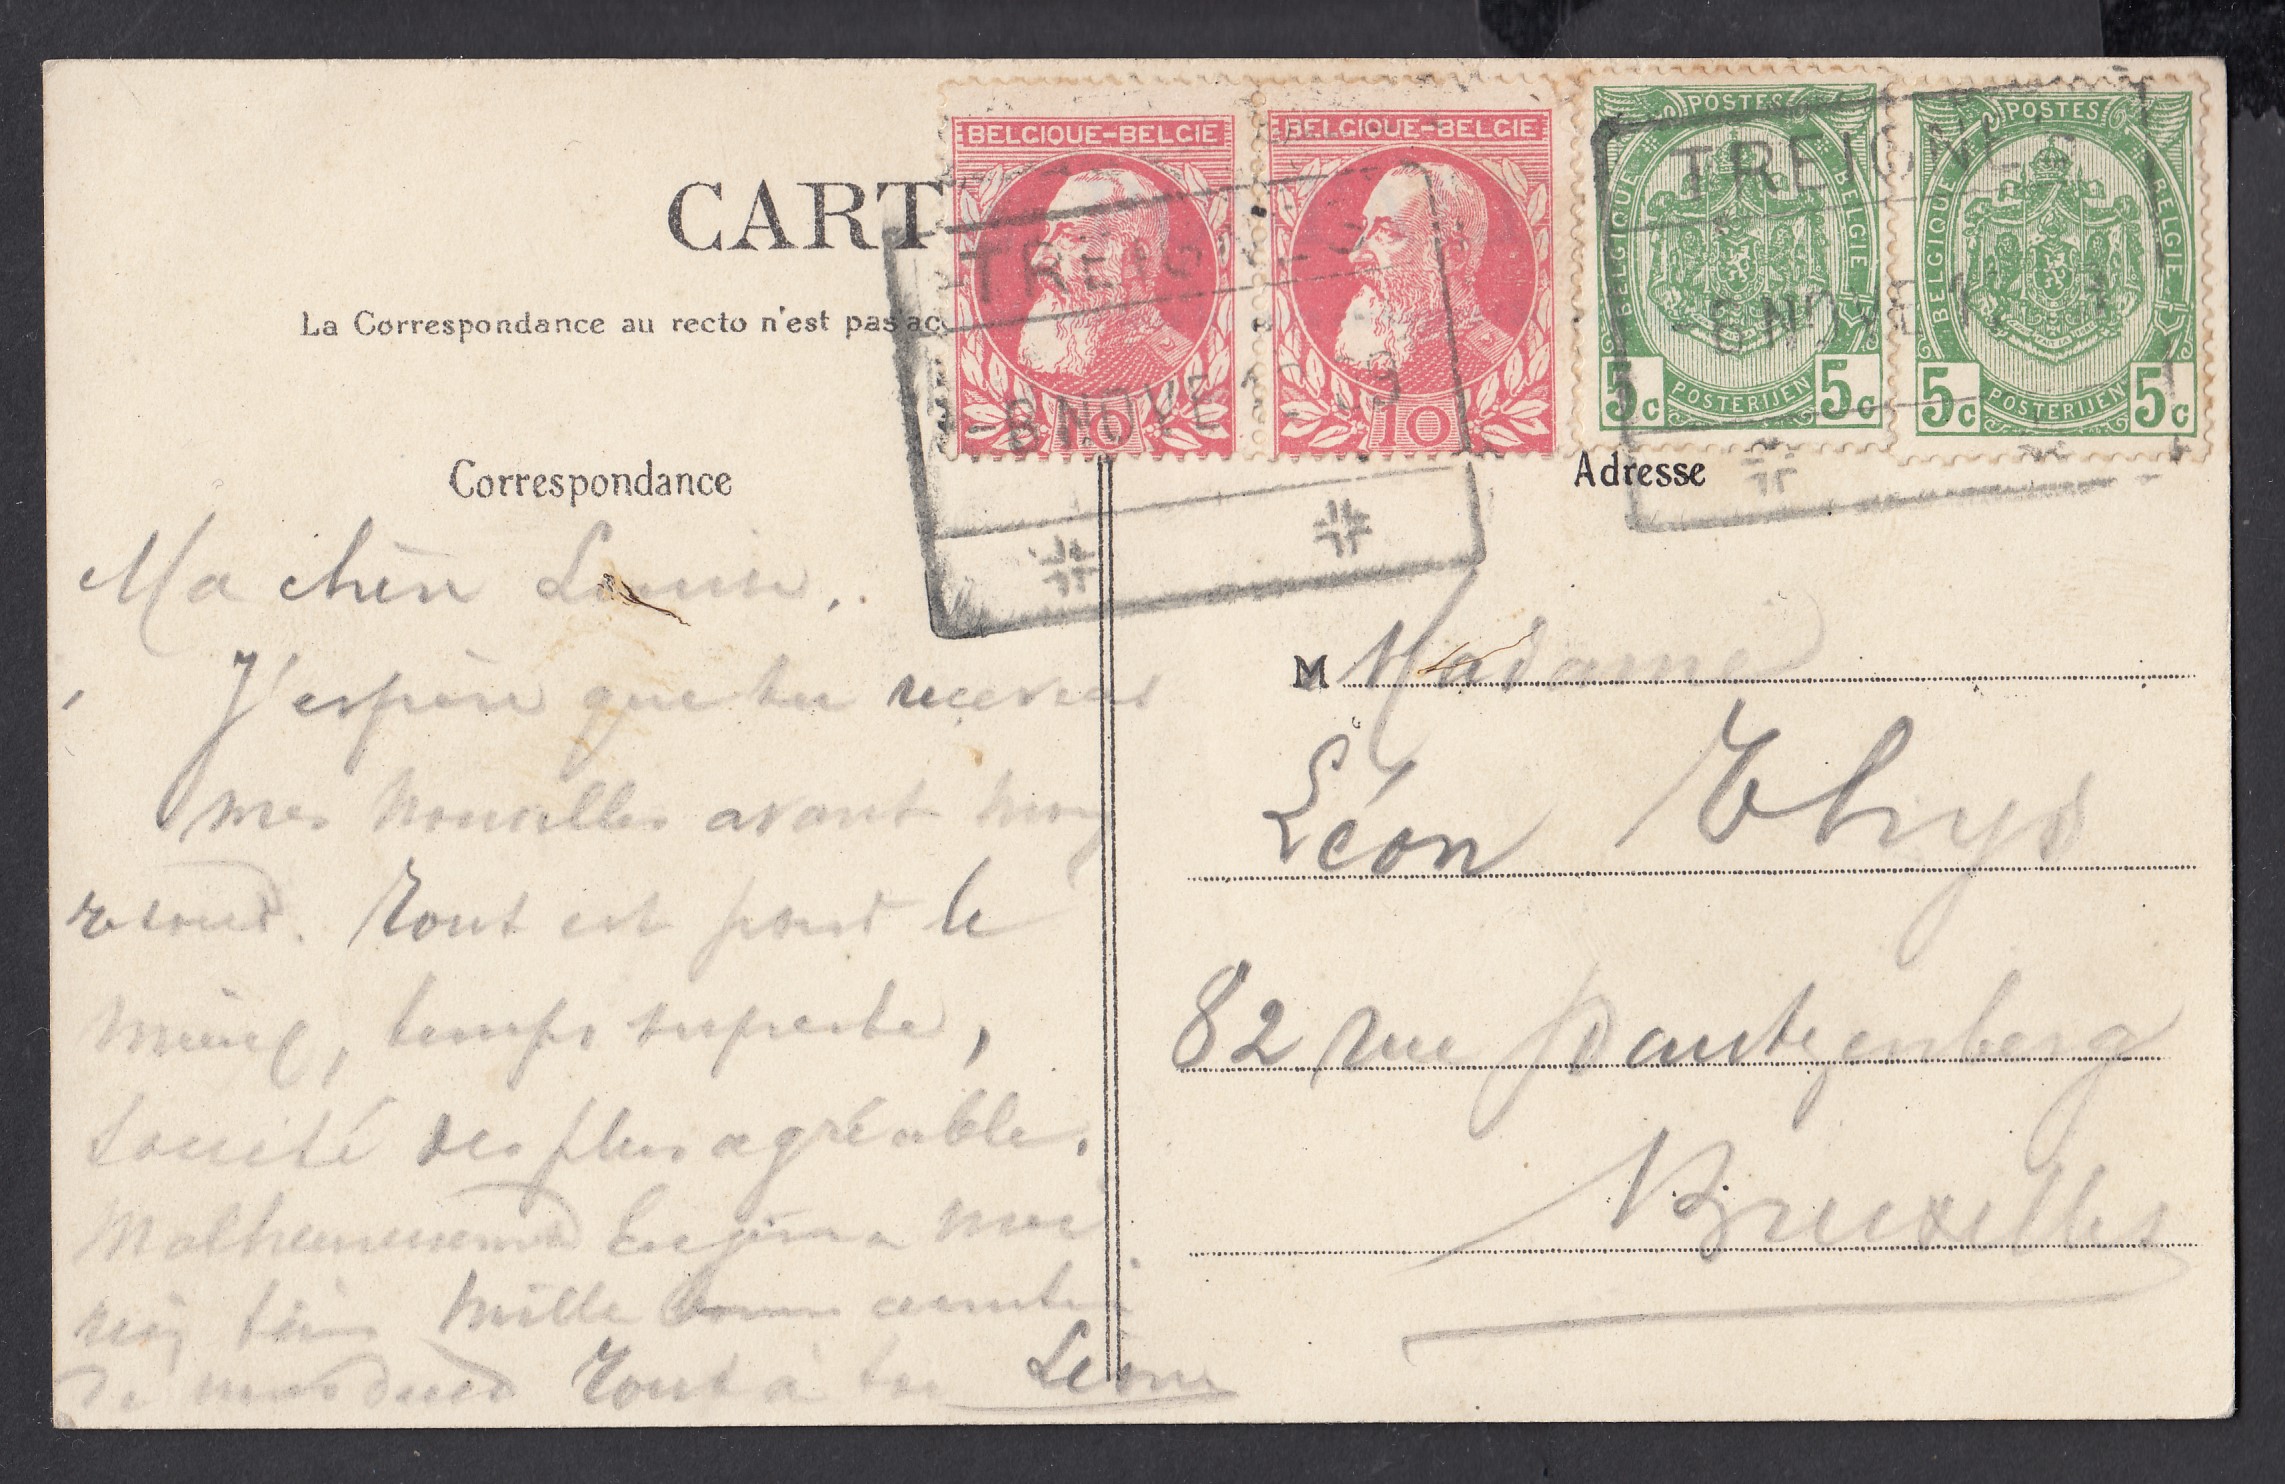 BELGIQUE-BELGIE BELGIQUE-BELGIE
10 10
POSTES POSTES
BELGIQUE BELGIE BELGIQUE BELGIE
5c 5c 5c 5c
POSTERIJEN POSTERIJEN
TREIGNES
-8 NOVE
TREIGNES
-8 NOVE
CART
La Correspondance au recto n'est pas ac
Correspondance
Ma chère Louise,
J'espère que tu recevras
mes nouvelles avant mon
retour. Tout est pour le
mieux, temps superbe,
Société des plus agréable.
Malheureusement
rien Mille
Tout à toi Léon
Adresse
M Madame
Léon Thys
82 rue Dautzenberg
Bruxelles